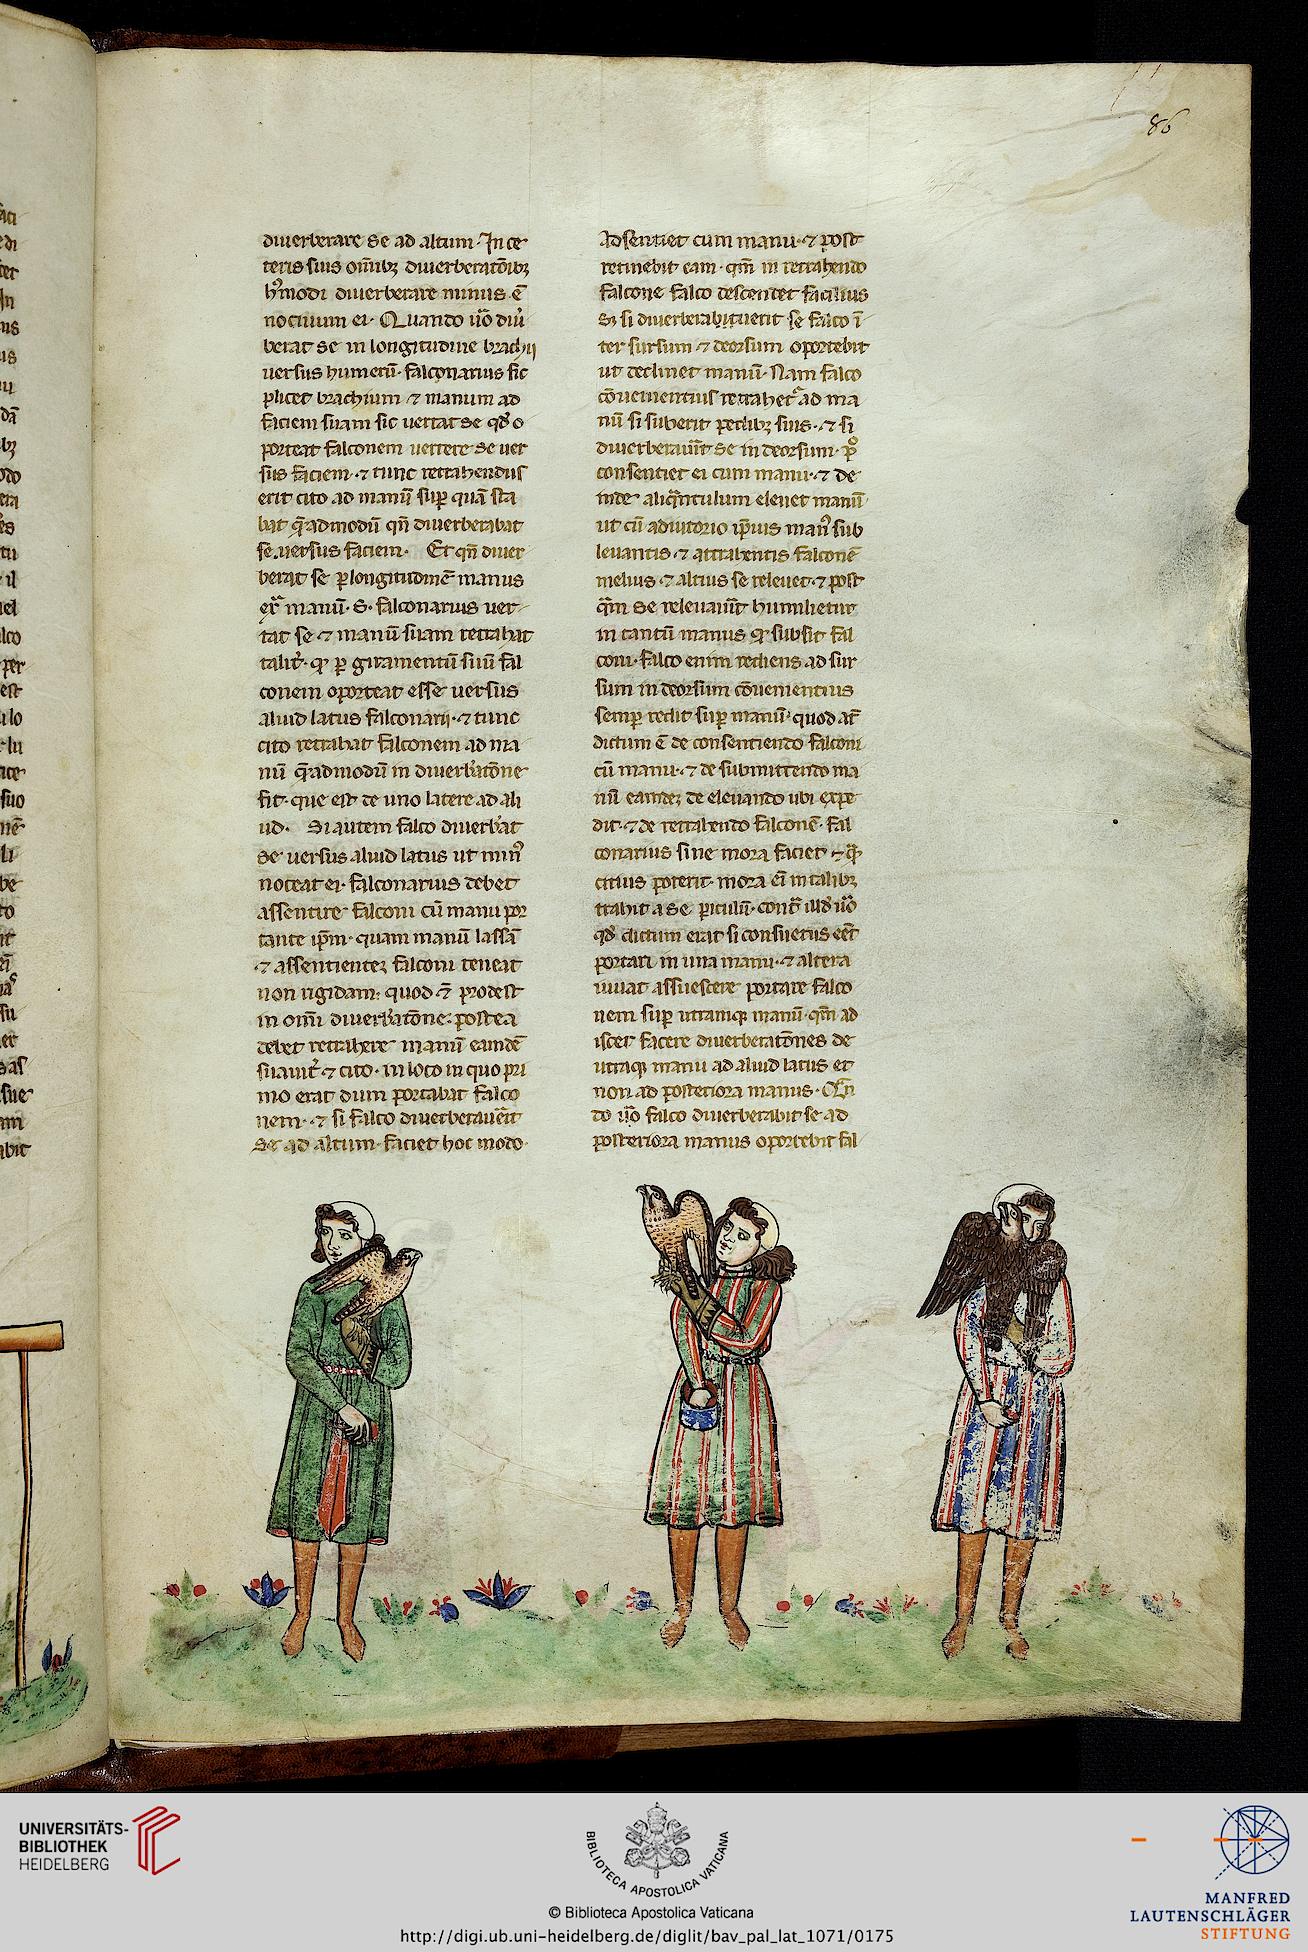 86
diuerberare se ad altum. In ce
teris suis om̄ibꝫ diuerberatōibꝫ
hꝰmodi diuerberare minus ē
nociuum ei. Quando u̾o diu̾
berat se in longitudine brachij
uersus humerū. falconarius sic
plicet brachium ⁊ manum ad
faciem suam sic uertat se qd̾ o
porteat falconem uertere se uer
sus faciem. ⁊ tunc retrahendus
erit cito ad manū suꝑ quā sta
bat q̄admodū qn̄ diuerberabat
se uersus faciem. Et qn̄ diuer
berat se ꝑ longitudinē manus
ext̾ manū. s. falconarius uer
tat se ⁊ manū suam retrahat
talit̾. qꝫ ꝑ giramentū suū fal
conem oporteat esse uersus
aliud latus falconarij. ⁊ tunc
cito retrahat falconem ad ma
nū q̄admodū in diuerb̾atōne
fit. que est de uno latere ad ali
ud. Si autem falco diuerb̾at
se uersus aliud latus ut minꝰ
noceat ei. falconarius debet
assentire falconi cū manu por
tante ip̄m. quam manū lassā
⁊ assentienteꝫ falconi teneat
non rigidam. quod ⁊̄ prodest
in om̄i diuerb̾atōne. postea
debet retrahere manū eandē
suauit̾ ⁊ cito. in loco in quo pri
mo erat dum portabat falco
nem. ⁊ si falco diuerberauerit
se ad altum. faciet hoc modo.
Adsentiet cum manu. ⁊ post
retinebit eam. qm̄ in retrahendo
falcone falco descendet facilius
Sꝫ si diuerberabit uerit se falco ī
ter sursum ⁊ deorsum oportebit
ut declinet manū. Nam falco
cōuenientius retrahet̾ ad ma
nū si suberit pedibꝫ suis. ⁊ si
diuerberauit̾ se in deorsum. pͦ
consentiet ei cum manu. ⁊ de
inde aliq̄ntulum eleuet manū
ut cū adiutorio ip̄ius manꝰ sub
leuantis ⁊ attrahentis falconē
melius ⁊ altius se releuet. ⁊ post
q̄m se releuauit̾ humilietur
in tantū manus qꝫ subsit fal
coni. falco enim rediens ad sur
sum in deorsum cōuenientius
semꝑ redit suꝑ manū. quod at̄
dictum ē de consentiendo falconi
cū manu. ⁊ de submittendo ma
nū eandeꝫ de eleuando ubi expe
dit. ⁊ de retrahendo falconē. fal
conarius sine mora faciet ⁊ q̄
citius poterit. mora ei̅ in talibꝫ
trahit a se periculū. contᵃ illd̾ u̾o
qd̾ dictum erat si consuetus eēt
portari in una manu. ⁊ altera
iuuat assuescere portare falco
nem suꝑ utramqꝫ manū. qm̄ ad
iscet facere diuerberatōnes de
utraqꝫ manu ad aliud latus et
non ad posteriora manus. Qn̄
do u̾o falco diuerberabit se ad
posteriora manus oportebit fal
UNIVERSITÄTS-
BIBLIOTHEK
HEIDELBERG
BIBLIOTECA APOSTOLICA VATICANA
© Biblioteca Apostolica Vaticana
http://digi.ub.uni-heidelberg.de/diglit/bav_pal_lat_1071/0175
MANFRED
LAUTENSCHLÄGER
STIFTUNG